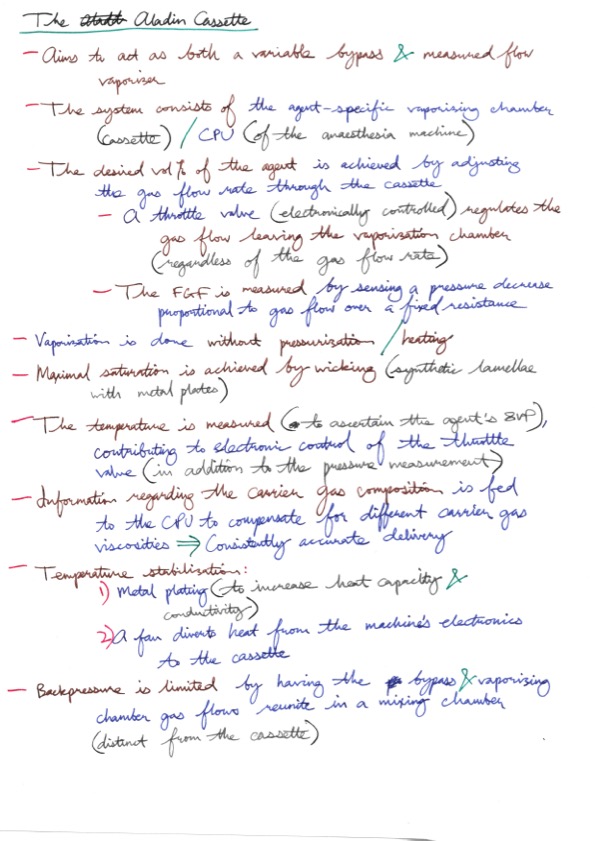 The Aladin Cassette
- Aims to act as both a variable bypass & measured flow
vaporizer
- The system consists of the agent-specific vaporising chamber
(cassette) / CPU (of the anaesthesia machine)
- The desired vol% of the agent is achieved by adjusting
the gas flow rate through the cassette
- A throttle valve (electronically controlled) regulates the
gas flow leaving the vaporization chamber
(regardless of the gas flow rate)
- The FGF is measured by sensing a pressure decrease
proportional to gas flow over a fixed resistance
- Vaporization is done without pressurization / heating
- Maximal saturation is achieved by wicking (synthetic lamellae
with metal plates)
- The temperature is measured (to ascertain the agent's SVP),
contributing to electronic control of the throttle
valve (in addition to the pressure measurement)
- Information regarding the carrier gas composition is fed
to the CPU to compensate for different carrier gas
viscosities ⇒ Consistently accurate delivery
- Temperature stabilization:
1) Metal plating (to increase heat capacity &
conductivity)
2) A fan diverts heat from the machine's electronics
to the cassette
- Backpressure is limited by having the bypass & vaporizing
chamber gas flows reunite in a mixing chamber
(distinct from the cassette)